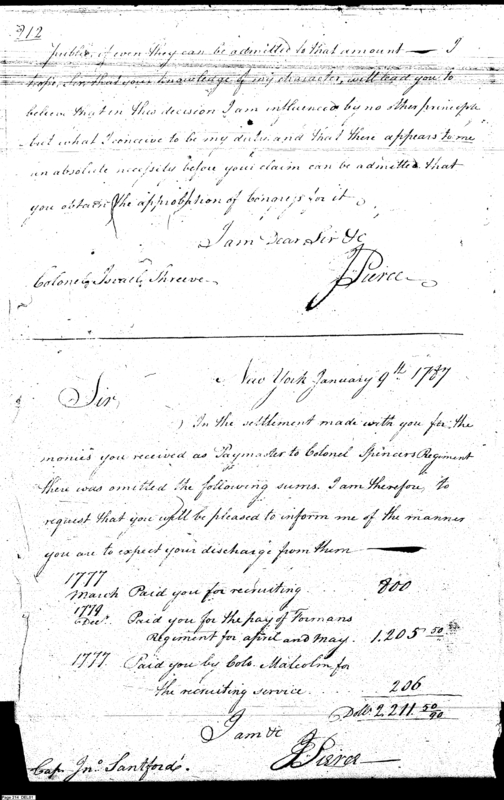 212
Public, if even they can be admitted to that amount — I
hope, Sir that your knowledge of my character, will lead you to
believe that in this decision I am influenced by no other principle
but what I conceive to be my duty and that there appears to me
an absolute necessity before your claim can be admitted that
you obtain the approbation of Congress for it
I am Dear Sir &c
J Pierce
Colonel Israel Shreeve
New York January 9th. 1787
Sir,
In the settlement made with you for the
monies you received as Paymaster to Colonel Spencers Regiment
there was omitted the following sums. I am therefore, to
request that you will be pleased to inform me of the manner
you are to expect your discharge from them —
1777
March Paid you for recruiting 800
Decr. Paid you for the pay of Formans
Regiment for april and may. 1.205 50/90
1777. Paid you by Colo. Malcolm for
the recruiting service 206
Dolls. 2211. 50/90
I am &c
J Pierce
Cap. Jno. Santford.